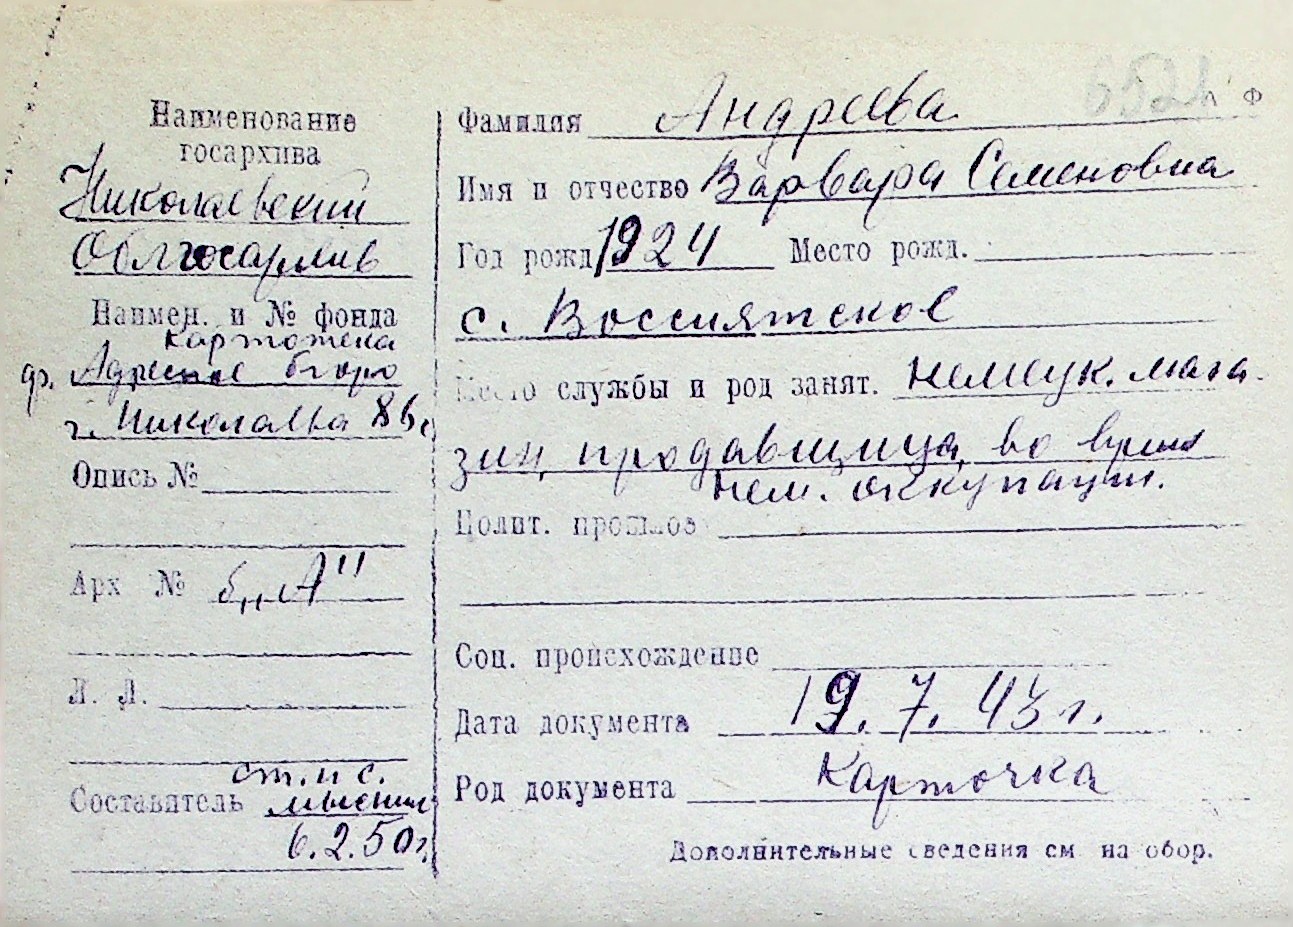 Наименование
госархива
Николаевский
Облгосархив
Наимен. и № фонда
картотека
др. Адресное бюро
г. Николаева
Опись №
Арх № б „А"
Л. Л.
ст. н с.
Составитель
6.2.50 г.
6521 л Ф
Фамилия Андреева
Имя и отчество Варвара Семеновна
Год рожд 1924 Место рожд.
с. Воссиятское
Место службы и род занят. немецк. мага-
зин, продавщица, во время
нем. оккупации.
Полит. прошлое
Соц. происхождение
Дата документа 19. 7. 43 г.
Род документа Карточка
Дополнительные сведения см на обор.